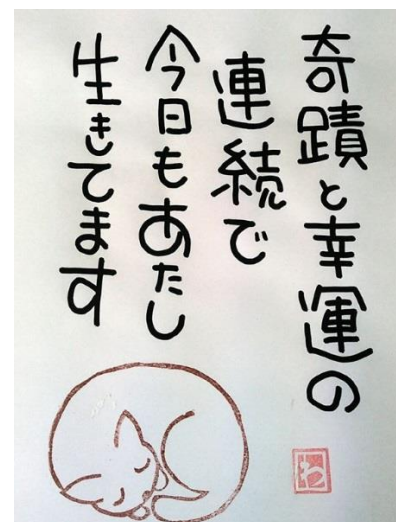 奇蹟と幸運の
連続で
今日もあたし
生きてます
わ